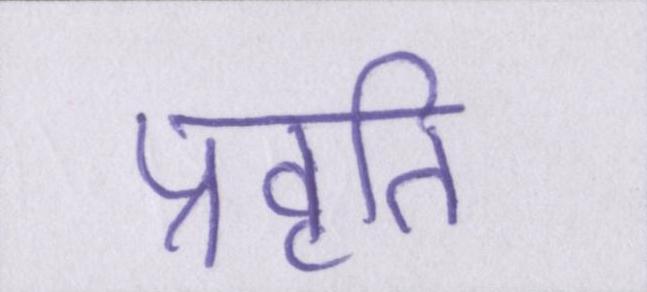 प्रवृति